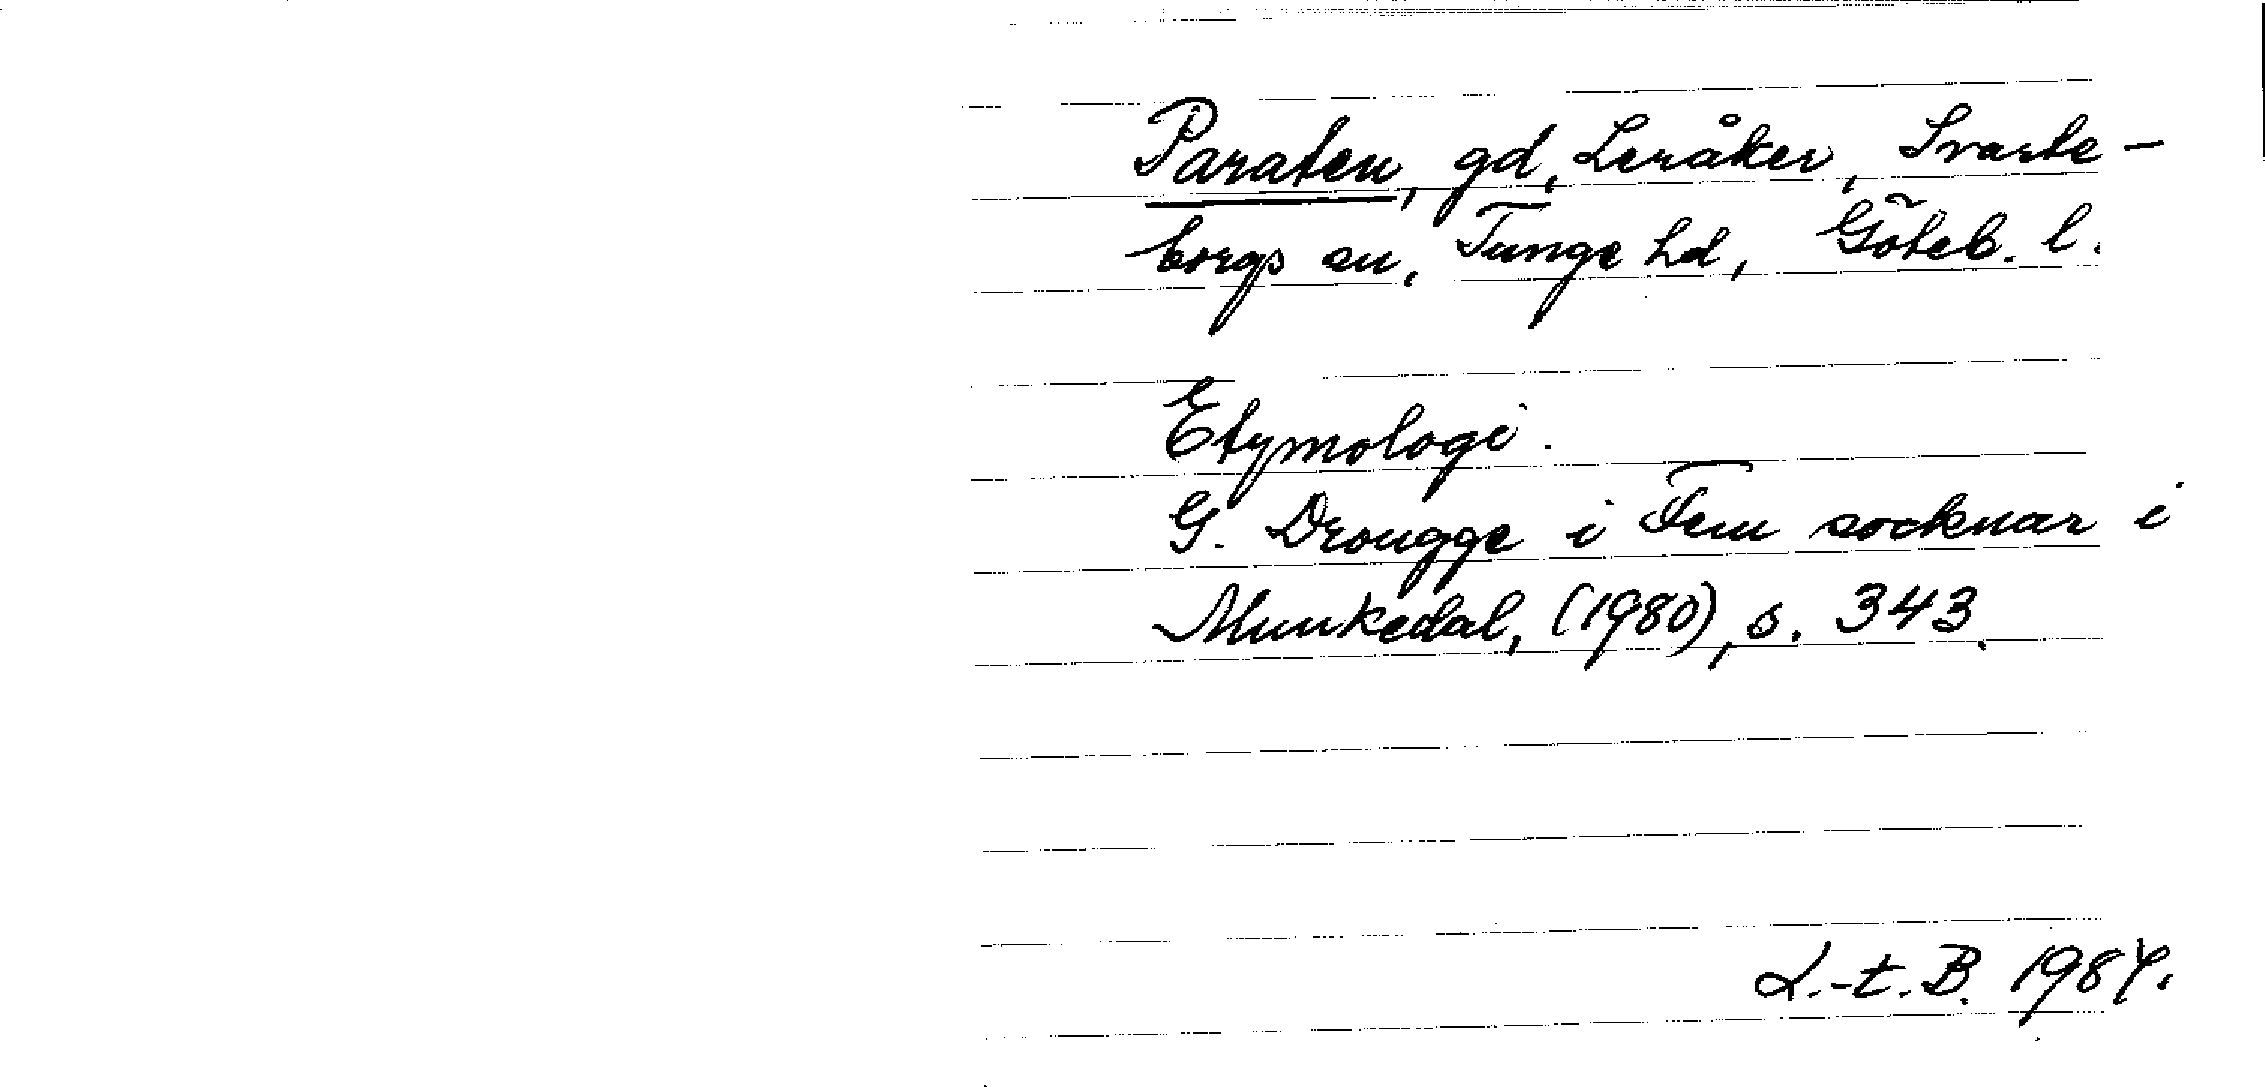 Paraten, gd, Leråker, Svarte-
borgs sn, Tunge hd, Göteb. l.
Etymologi.
G. Drougge i Fem socknar i
Munkedal, (1980), s. 343.
L.-t. B. 1984.